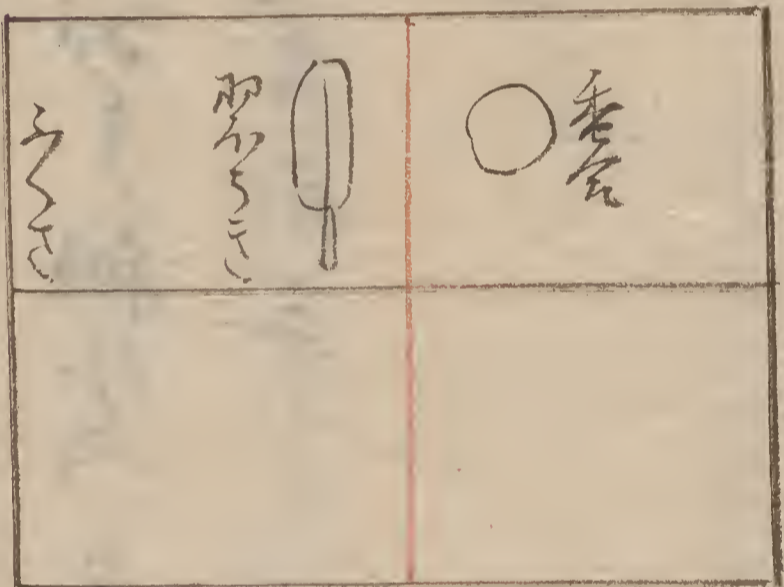 香合
羽ほうき
ふくさ